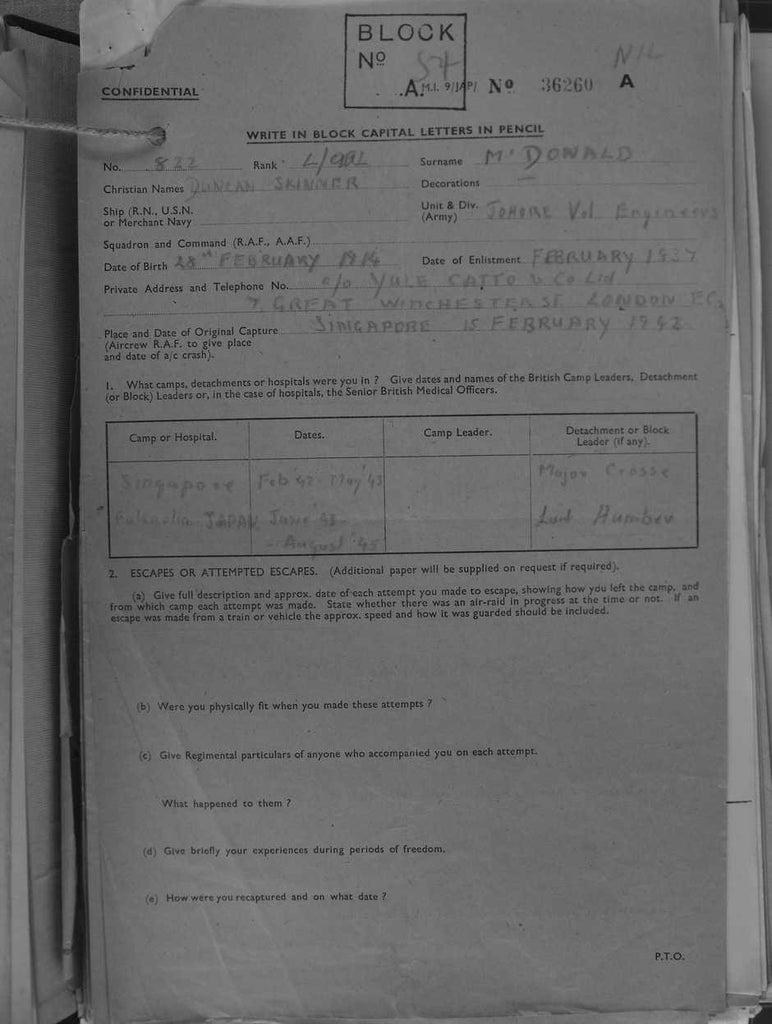 BLOCK
Nº 54
A.M.I. 9/JAP/ Nº 36260 A
NIL
CONFIDENTIAL
WRITE IN BLOCK CAPITAL LETTERS IN PENCIL
No. 822 Rank L/CPL Surname McDONALD
Christian Names DUNCAN SKINNER Decorations —
Ship (R.N., U.S.N. or Merchant Navy
Unit & Div. (Army) JOHORE Vol Engineers
Squadron and Command (R.A.F., A.A.F.)
Date of Birth 28TH FEBRUARY 1914 Date of Enlistment FEBRUARY 1937
Private Address and Telephone No. c/o YULE CATTO & Co Ltd
7, GREAT WINCHESTER ST LONDON EC2
Place and Date of Original Capture SINGAPORE 15 FEBRUARY 1942
(Aircrew R.A.F. to give place
and date of a/c crash).
1. What camps, detachments or hospitals were you in ? Give dates and names of the British Camp Leaders, Detachment
(or Block) Leaders or, in the case of hospitals, the Senior British Medical Officers.
Camp or Hospital. Dates. Camp Leader. Detachment or Block Leader (if any).
Singapore Feb '42 - May '43 Major Crosse
JAPAN June '43 -
- August '45
2. ESCAPES OR ATTEMPTED ESCAPES. (Additional paper will be supplied on request if required).
(a) Give full description and approx. date of each attempt you made to escape, showing how you left the camp, and
from which camp each attempt was made. State whether there was an air-raid in progress at the time or not. If an
escape was made from a train or vehicle the approx. speed and how it was guarded should be included.
(b) Were you physically fit when you made these attempts ?
(c) Give Regimental particulars of anyone who accompanied you on each attempt.
What happened to them ?
(d) Give briefly your experiences during periods of freedom.
(e) How were you recaptured and on what date ?
P.T.O.